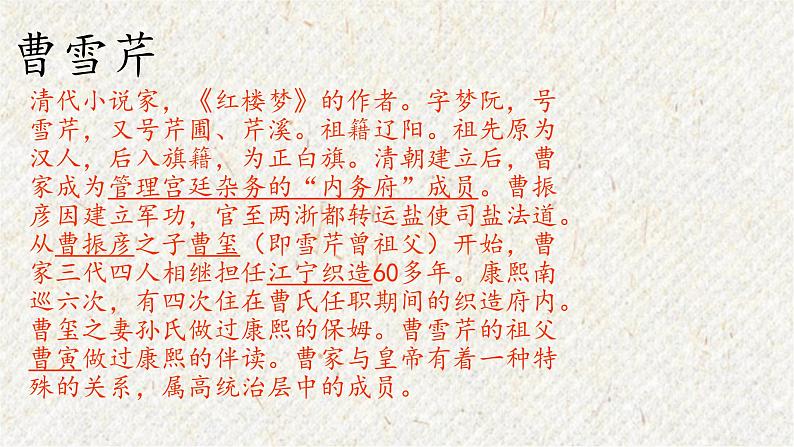 曹雪芹
清代小说家，《红楼梦》的作者。字梦阮，号
雪芹，又号芹圃、芹溪。祖籍辽阳。祖先原为
汉人，后入旗籍，为正白旗。清朝建立后，曹
家成为管理宫廷杂务的“内务府”成员。曹振
彦因建立军功，官至两浙都转运盐使司盐法道。
从曹振彦之子曹玺（即雪芹曾祖父）开始，曹
家三代四人相继担任江宁织造60多年。康熙南
巡六次，有四次住在曹氏任职期间的织造府内。
曹玺之妻孙氏做过康熙的保姆。曹雪芹的祖父
曹寅做过康熙的伴读。曹家与皇帝有着一种特
殊的关系，属高统治层中的成员。